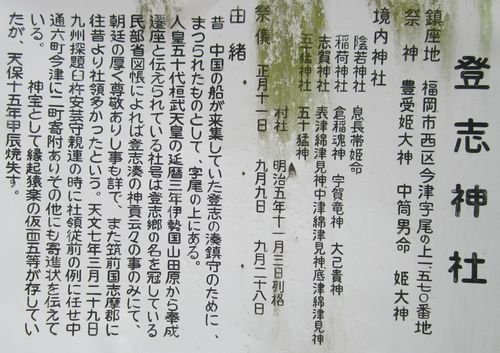 登志神社
鎮座地　福岡市西区今津字尾の上一五七〇番地
祭　神　豊受姫大神　中筒男命　姫大神
境内神社
陰若神社　息長帯姫命
稲荷神社　倉稲魂神　宇賀竜神　大己貴神
志賀神社　表津綿津見神中津綿津見神底津綿津見神
五十猛神社　五十猛神
村社　明治五年十一月三日列格
祭儀　正月十一日　九月九日　九月二十八日
由緒
昔　中国の船が来集していた登志の湊鎮守のために、
まつられたものとして、字尾の上にある。
人皇五十代桓武天皇の延暦三年伊勢国山田原から奉成
遷座と伝えられている社号は登志郷の名を冠している
民部省図帳によれば登志湊の神貢云々の事のみにて、
朝廷の厚く尊敬ありし事も詳で、また筑前国志摩郡に
往昔より社領多かったという。天文七年三月二十九日
九州探題臼杵安芸守親連の時に社領従前の例に任せ中
通六町今津に二町寄附ありその他にも寄進状を伝えて
いる。　神宝として縁起猿楽の仮面五等が存してい
たが、天保十五年甲辰焼失す。